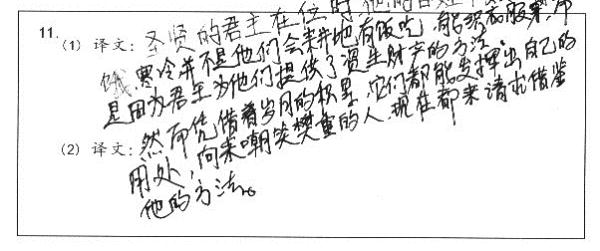 11. (1) 译文: 圣贤的君主在位时,他们百姓不
饿寒冷并不是他们会耕地有饭吃,能织衣服穿,而
是因为君主为他们提供了资生财产的方法。
(2) 译文: 然而凭借着岁月的积累,它们都能发挥出自己的
用处,向来嘲笑樊重的人,现在都来请求借鉴
他的方法。